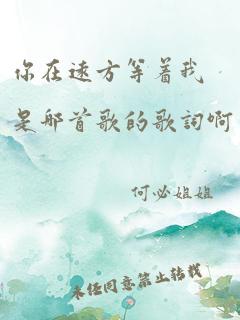 你在远方等着我
是那首歌的歌词啊
何必姐姐
未经同意禁止转载